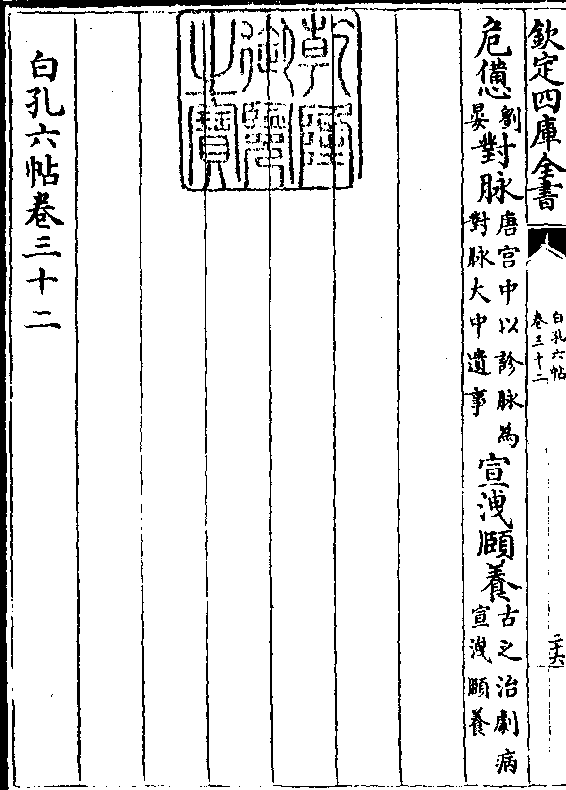 欽定四庫全書
白孔六帖
卷三十二
危憊劉晏對脉唐宫中以診脉為對脉大中遺事宣洩頤養古之治劇病宣洩頤養
乾隆御覽之寶
白孔六帖卷三十二